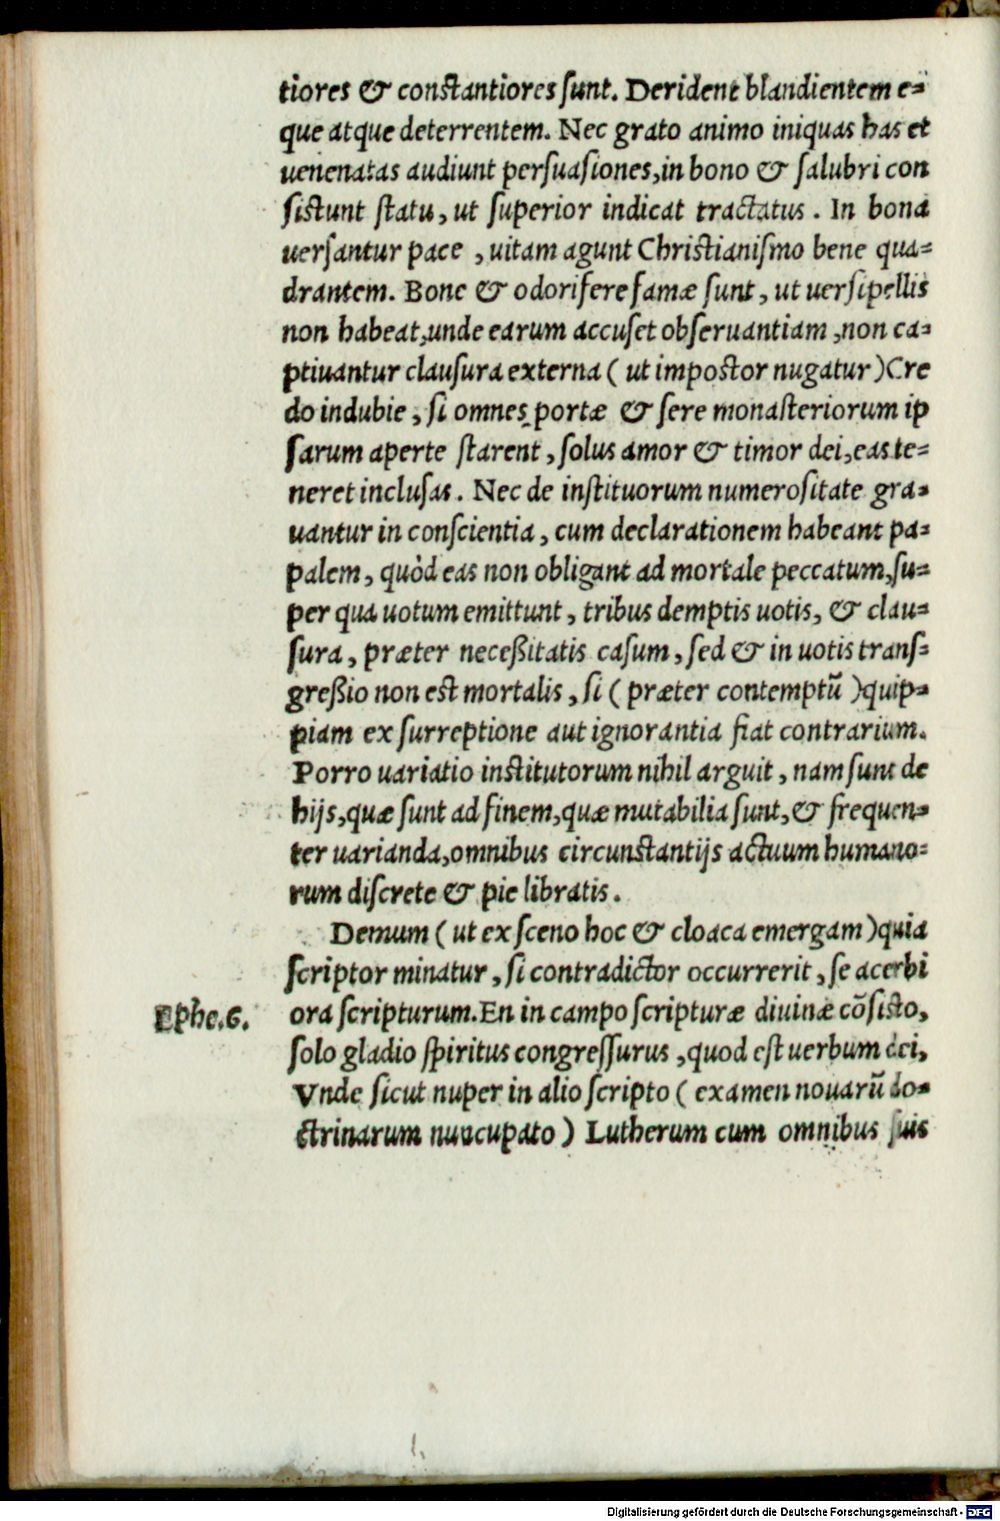 tiores & constantiores ſunt. Derident blandientem e⸗
que atque deterrentem. Nec grato animo iniquas has et
uenenatas audiunt perſuaſiones, in bono & ſalubri con
ſiſtunt ſtatu, ut ſuperior indicat tractatus. In bona
uerſantur pace, uitam agunt Chriſtianiſmo bene qua⸗
drantem. Bone & odorifere famæ ſunt, ut uerſipellis
non habeat, unde earum accuſet obſeruantiam, non ca⸗
ptiuantur clauſura externa ( ut impoſtor nugatur ) Cre
do indubie, ſi omnes portæ & ſere monaſteriorum ip
ſarum aperte ſtarent, ſolus amor & timor dei, eas te⸗
neret incluſas. Nec de inſtituorum numeroſitate gra⸗
uantur in conſcientia, cum declarationem habeant pa⸗
palem, quòd eas non obligant ad mortale peccatum, ſu⸗
per qua uotum emittunt, tribus demptis uotis, & clau⸗
ſura, præter neceßitatis caſum, ſed & in uotis tranſ⸗
greßio non est mortalis, ſi ( præter contemptũ ) quip⸗
piam ex ſurreptione aut ignorantia fiat contrarium.
Porro uariatio inſtitutorum nihil arguit, nam ſunt de
hijs, quæ ſunt ad finem, quæ mutabilia ſunt, & frequen⸗
ter uarianda, omnibus circunſtantijs actuum humano⸗
rum diſcrete & pie libratis.
Demum ( ut ex ſceno hoc & cloaca emergam ) quia
ſcriptor minatur, ſi contradictor occurrerit, ſe acerbi
ora ſcripturum. En in campo ſcripturæ diuinæ cõſiſto,
Ephe.6.
ſolo gladio ſpiritus congreſſurus, quod eſt uerbum dei,
Vnde ſicut nuper in alio ſcripto ( examen nouarũ do⸗
ctrinarum nuncupato ) Lutherum cum omnibus ſuis
Digitalisierung gefördert durch die Deutsche Forschungsgemeinschaft - DFG